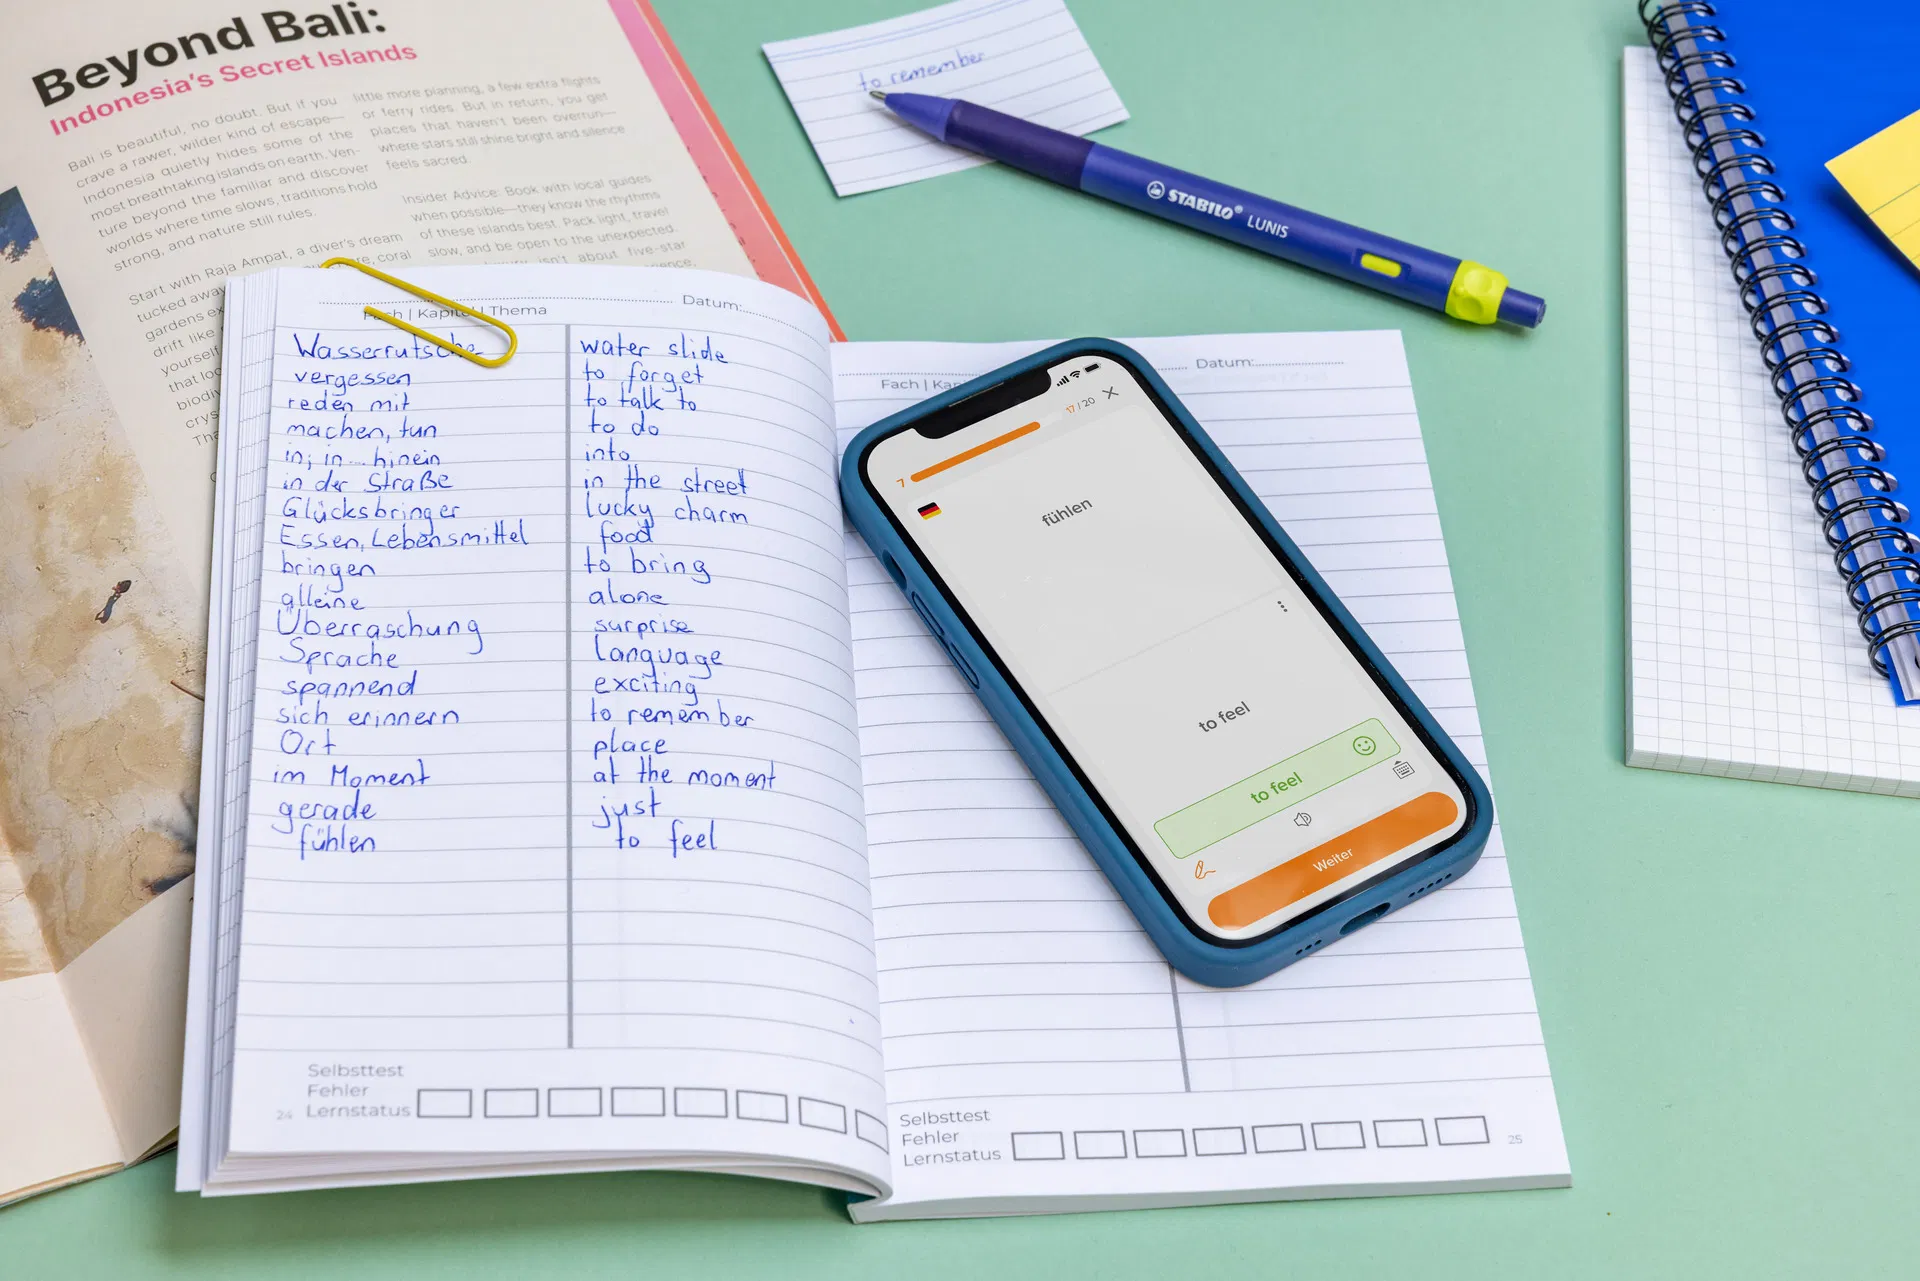 Beyond Bali:
Indonesia's Secret Islands
Bali is beautiful, no doubt. But if you
crave a rawer, wilder kind of escape—
Indonesia quietly hides some of the
most breathtaking islands on earth. Ven-
ture beyond the familiar and discover
worlds where time slows, traditions hold
strong, and nature still rules.
Start with Raja Ampat, a diver's dream
tucked away
gardens
drift like
yourself
that
Tha
little more planning, a few extra flights
or ferry rides. But in return, you get
places that haven't been overrun—
where stars still shine bright and silence
feels sacred.
Insider Advice: Book with local guides
when possible—they know the rhythms
of these islands best. Pack light, travel
slow, and be open to the unexpected.
isn't about five-star
to remember
STABILO® LUNIS
Datum:
Fach | Kapitel | Thema
Wasserrutsche water slide
vergessen to forget
reden mit to talk to
machen, tun to do
in; in... hinein into
in der Straße in the street
Glücksbringer lucky charm
Essen, Lebensmittel food
bringen to bring
alleine alone
Überraschung surprise
Sprache language
spannend exciting
sich erinnern to remember
Ort place
im Moment at the moment
gerade just
fühlen to feel
Selbsttest
Fehler
24 Lernstatus
Datum:
Fach | Kap
17/20
7
fühlen
to feel
to feel
Weiter
Selbsttest
Fehler
Lernstatus 25